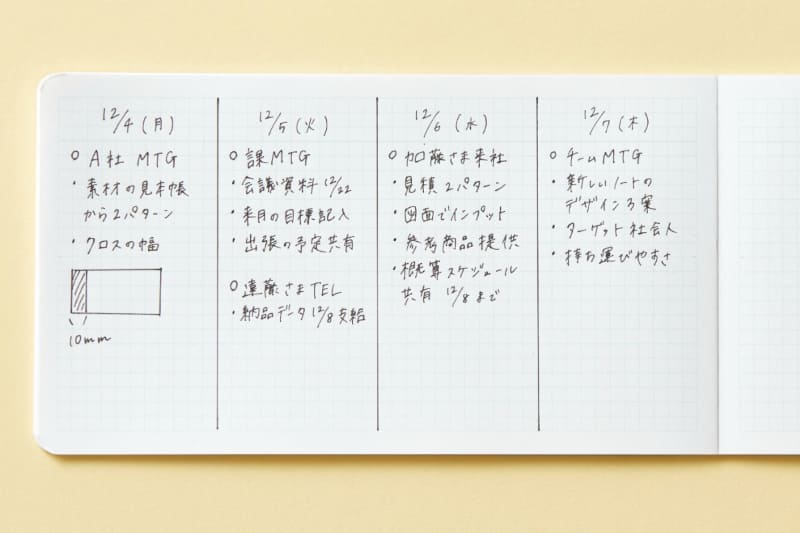 12/4(月)
○ A社 MTG
・素材の見本帳
から2パターン
・クロスの幅
10mm
12/5(火)
○ 課MTG
・会議資料 12/22
・来月の目標記入
・出張の予定共有
○ 遠藤さまTEL
・納品データ 12/8支給
12/6(水)
○ 加藤さま来社
・見積2パターン
・図面でインプット
・参考商品提供
・概算スケジュール
共有 12/8まで
12/7(木)
○ チームMTG
・新しいノートの
デザイン3案
・ターゲット社会人
・持ち運びやすさ